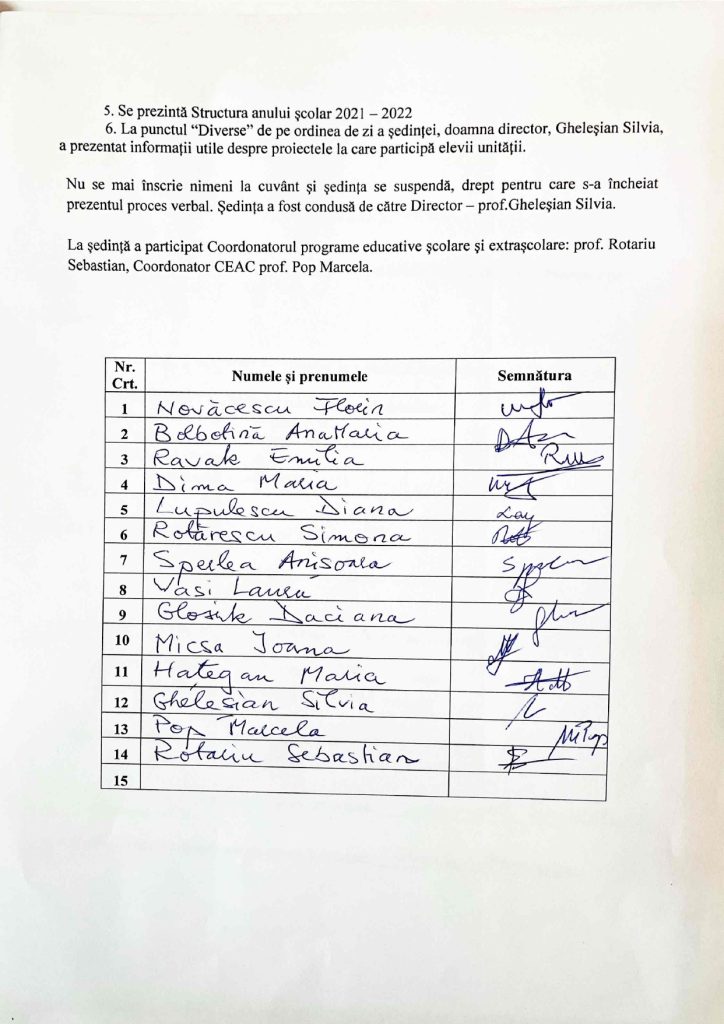 5. Se prezintă Structura anului școlar 2021 – 2022
6. La punctul “Diverse” de pe ordinea de zi a ședinței, doamna director, Gheleșian Silvia,
a prezentat informații utile despre proiectele la care participă elevii unității.
Nu se mai înscrie nimeni la cuvânt și ședința se suspendă, drept pentru care s-a încheiat
prezentul proces verbal. Ședința a fost condusă de către Director – prof.Gheleșian Silvia.
La ședință a participat Coordonatorul programe educative școlare și extrașcolare: prof. Rotariu
Sebastian, Coordonator CEAC prof. Pop Marcela.
Nr. Crt. Numele și prenumele Semnătura
1 Novăcescu Florin
2 Bolbotină AnaMaria
3 Ravak Emilia
4 Dima Maria
5 Lupulescu Diana
6 Rotărescu Simona
7 Sperlea Anisoara
8 Vasi Laura
9 Daciana
10 Micsa Ioana
11 Hategan Maria
12 Ghelesian Silvia
13 Pop Marcela
14 Rotariu Sebastian
15